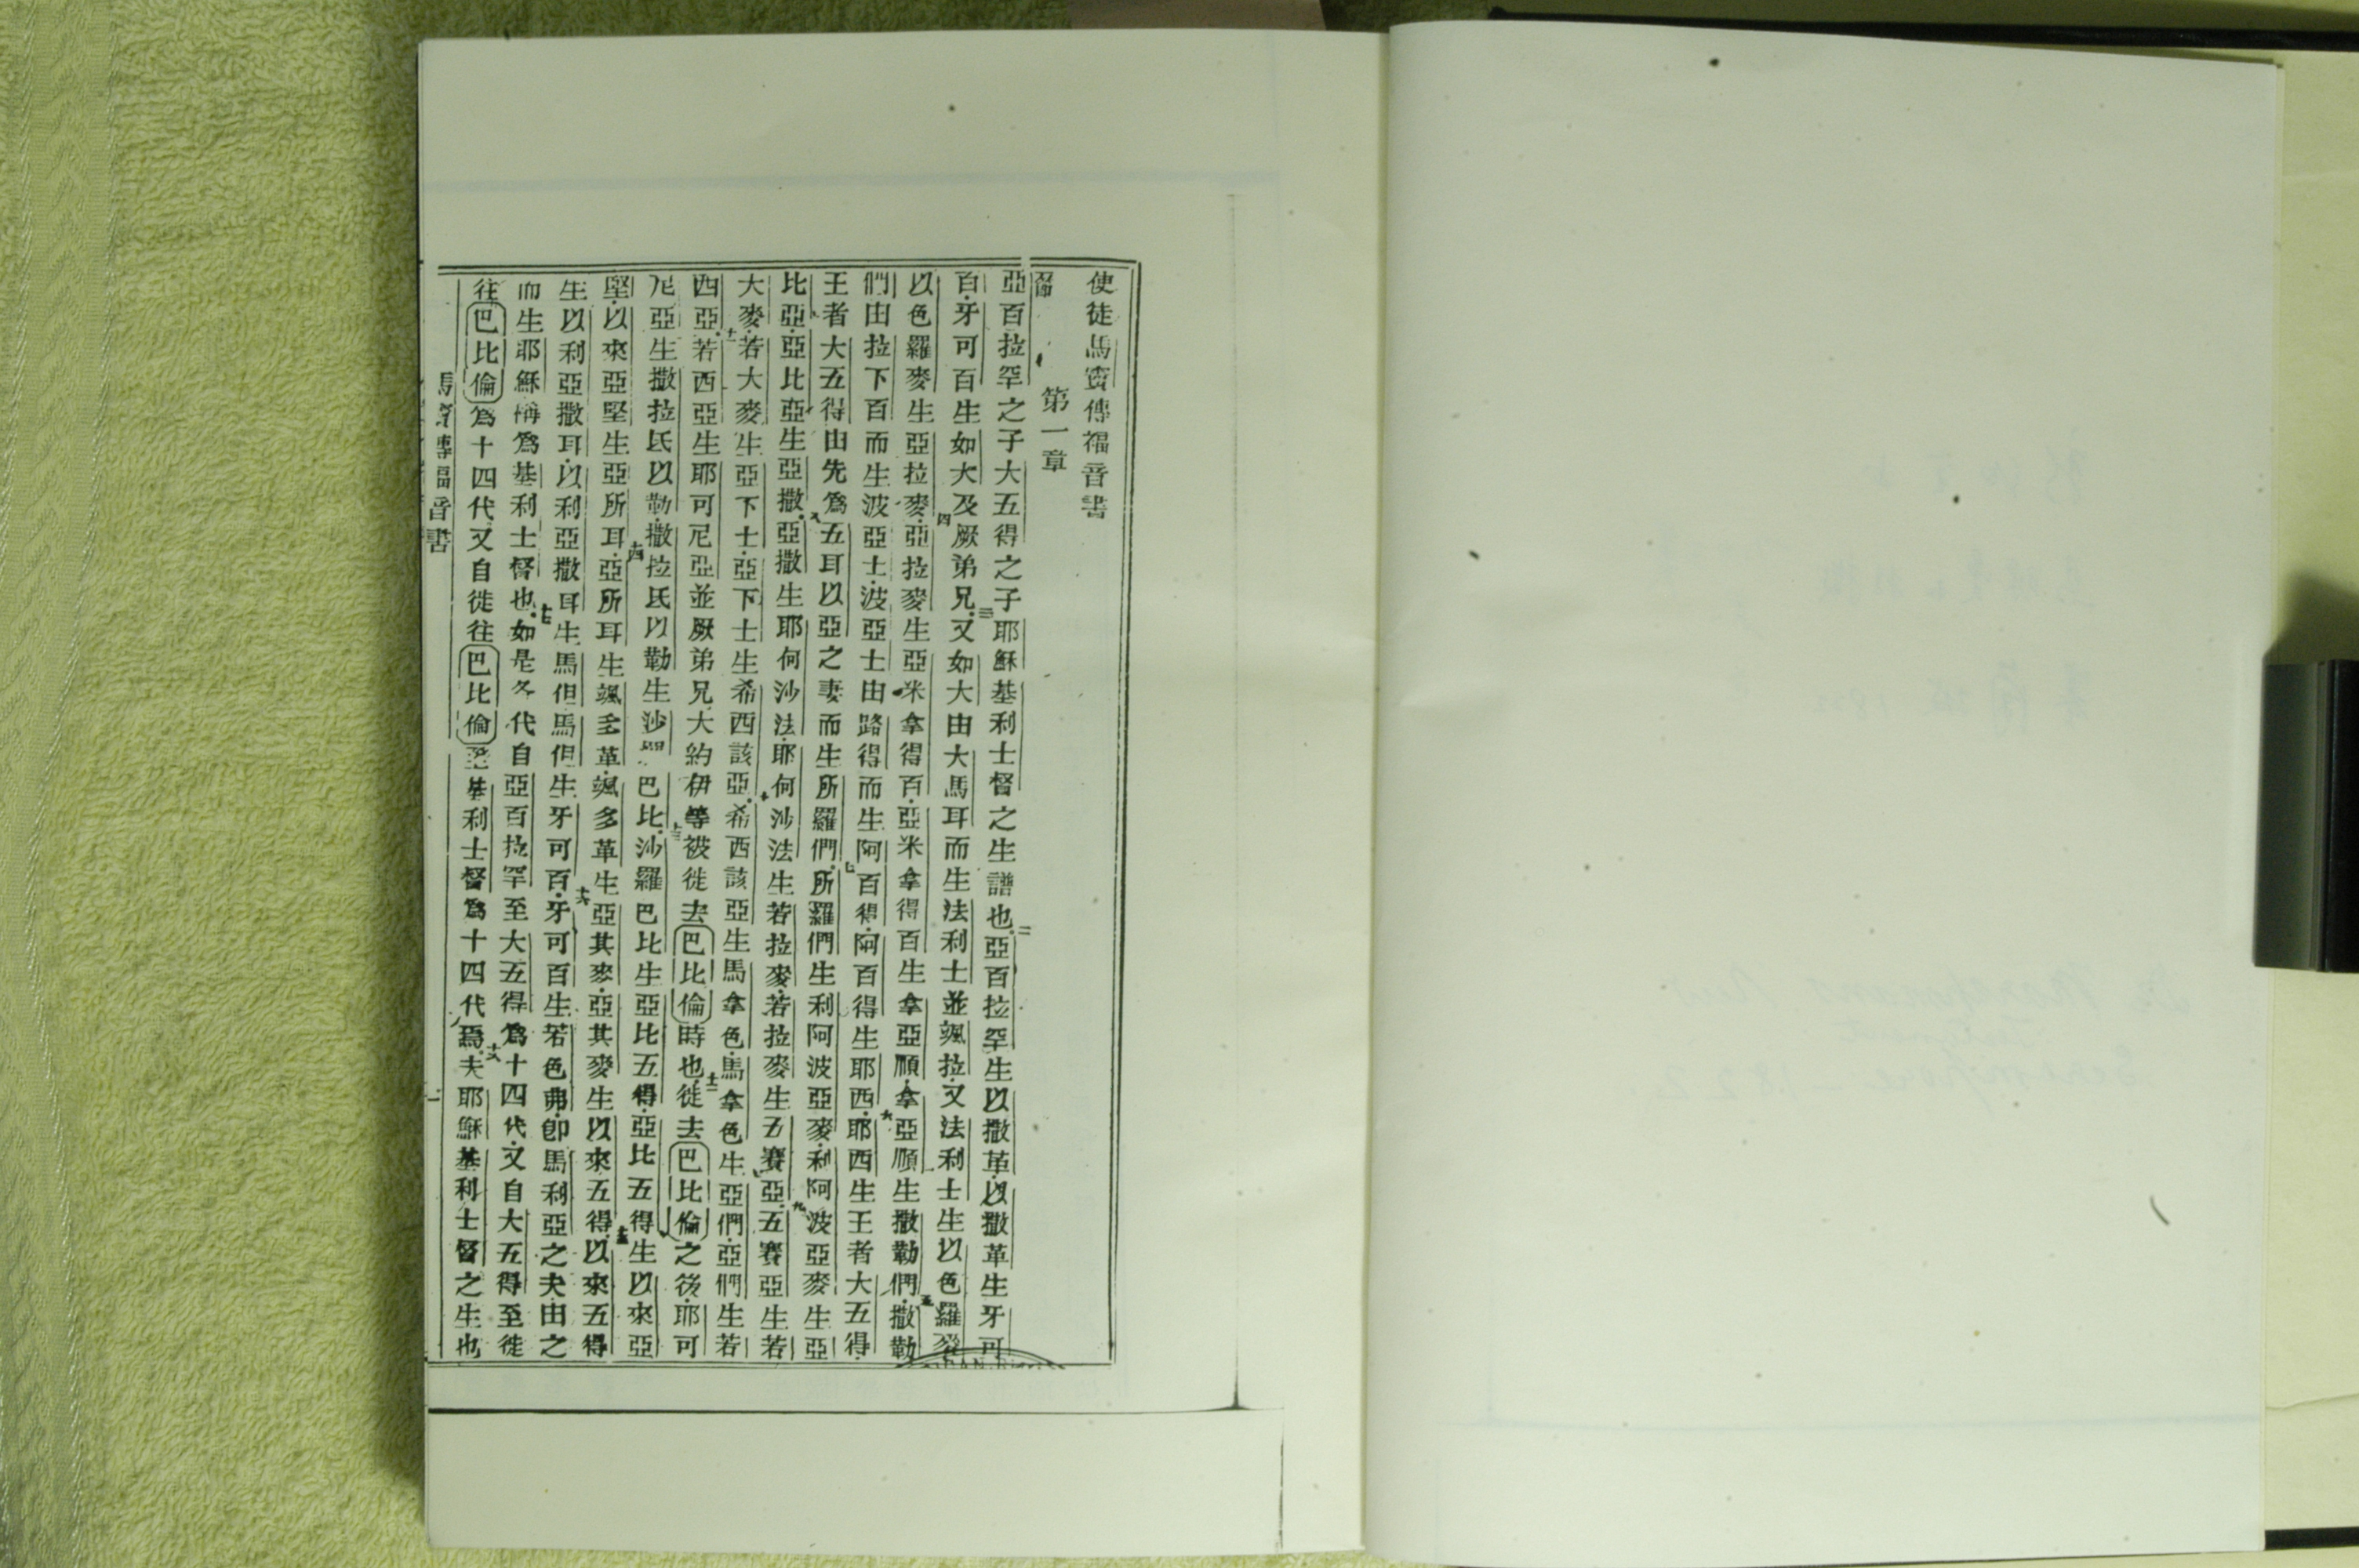 使徒馬竇傳福音書
第一章
亞百拉罕之子大五得之子耶穌基利士督之生譜也二亞百拉罕生以撒革以撒革生牙可
百牙可百生如大及厥弟兄三又如大由大馬耳而生法利士並颯拉又法利士生以色羅麥
以色羅麥生亞拉麥四亞拉麥生亞米拿得百亞米拿得百生拿亞順拿亞順生撒勒們五撒勒
們由拉下百而生波亞士波亞士由路得而生阿百得阿百得生耶西六耶西生王者大五得
王者大五得由先爲五耳以亞之妻而生所羅們七所羅們生利阿波亞麥利阿波亞麥生亞
比亞亞比亞生亞撒八亞撒生耶何沙法耶何沙法生若拉麥若拉麥生五賽亞九五賽亞生若
大麥若大麥生亞下士亞下士生希西該亞十希西該亞生馬拿色馬拿色生亞們亞們生若
西亞十一若西亞生耶可尼亞並厥弟兄大約伊等被徙去巴比倫時也十二徙去巴比倫之後耶可
尼亞生撒拉氐以勒撒拉氐以勒生沙羅巴比十三沙羅巴比生亞比五得亞比五得生以來亞
堅以來亞堅生亞所耳十四亞所耳生颯多革颯多革生亞其麥亞其麥生以來五得十五以來五得
生以利亞撒耳以利亞撒耳生馬但馬但生牙可百十六牙可百生若色弗卽馬利亞之夫由之
而生耶穌稱爲基利士督也十七如是各代自亞百拉罕至大五得爲十四代又自大五得至徙
往巴比倫爲十四代又自徙往巴比倫至基利士督爲十四代焉十八夫耶穌基利士督之生也
馬竇傳福音書
一